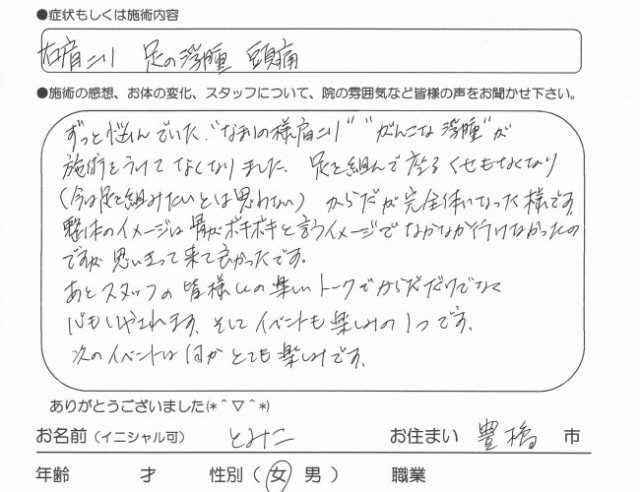 ●症状もしくは施術内容
右肩こり 足の浮腫 頭痛
●施術の感想、お体の変化、スタッフについて、院の雰囲気など皆様の声をお聞かせ下さい。
ずっと悩んでいた、"なまりの様肩こり" "がんこな浮腫"が
施術をうけてなくなりました。足を組んで座るくせもなくなり
(今は足を組みたいとは思わない) からだが完全体になった様です。
整体のイメージは骨がボキボキと言うイメージでなかなか行けなかったの
ですが 思いきって来て良かったです。
あとスタッフの皆様との楽しいトークでからだだけでなく
心もいやされます。そしてイベントも楽しみの1つです。
次のイベントは何か とても楽しみです。
ありがとうございました(*＾▽＾*)
お名前(イニシャル可) とみこ お住まい 豊橋 市
年齢 才 性別(女 男) 職業